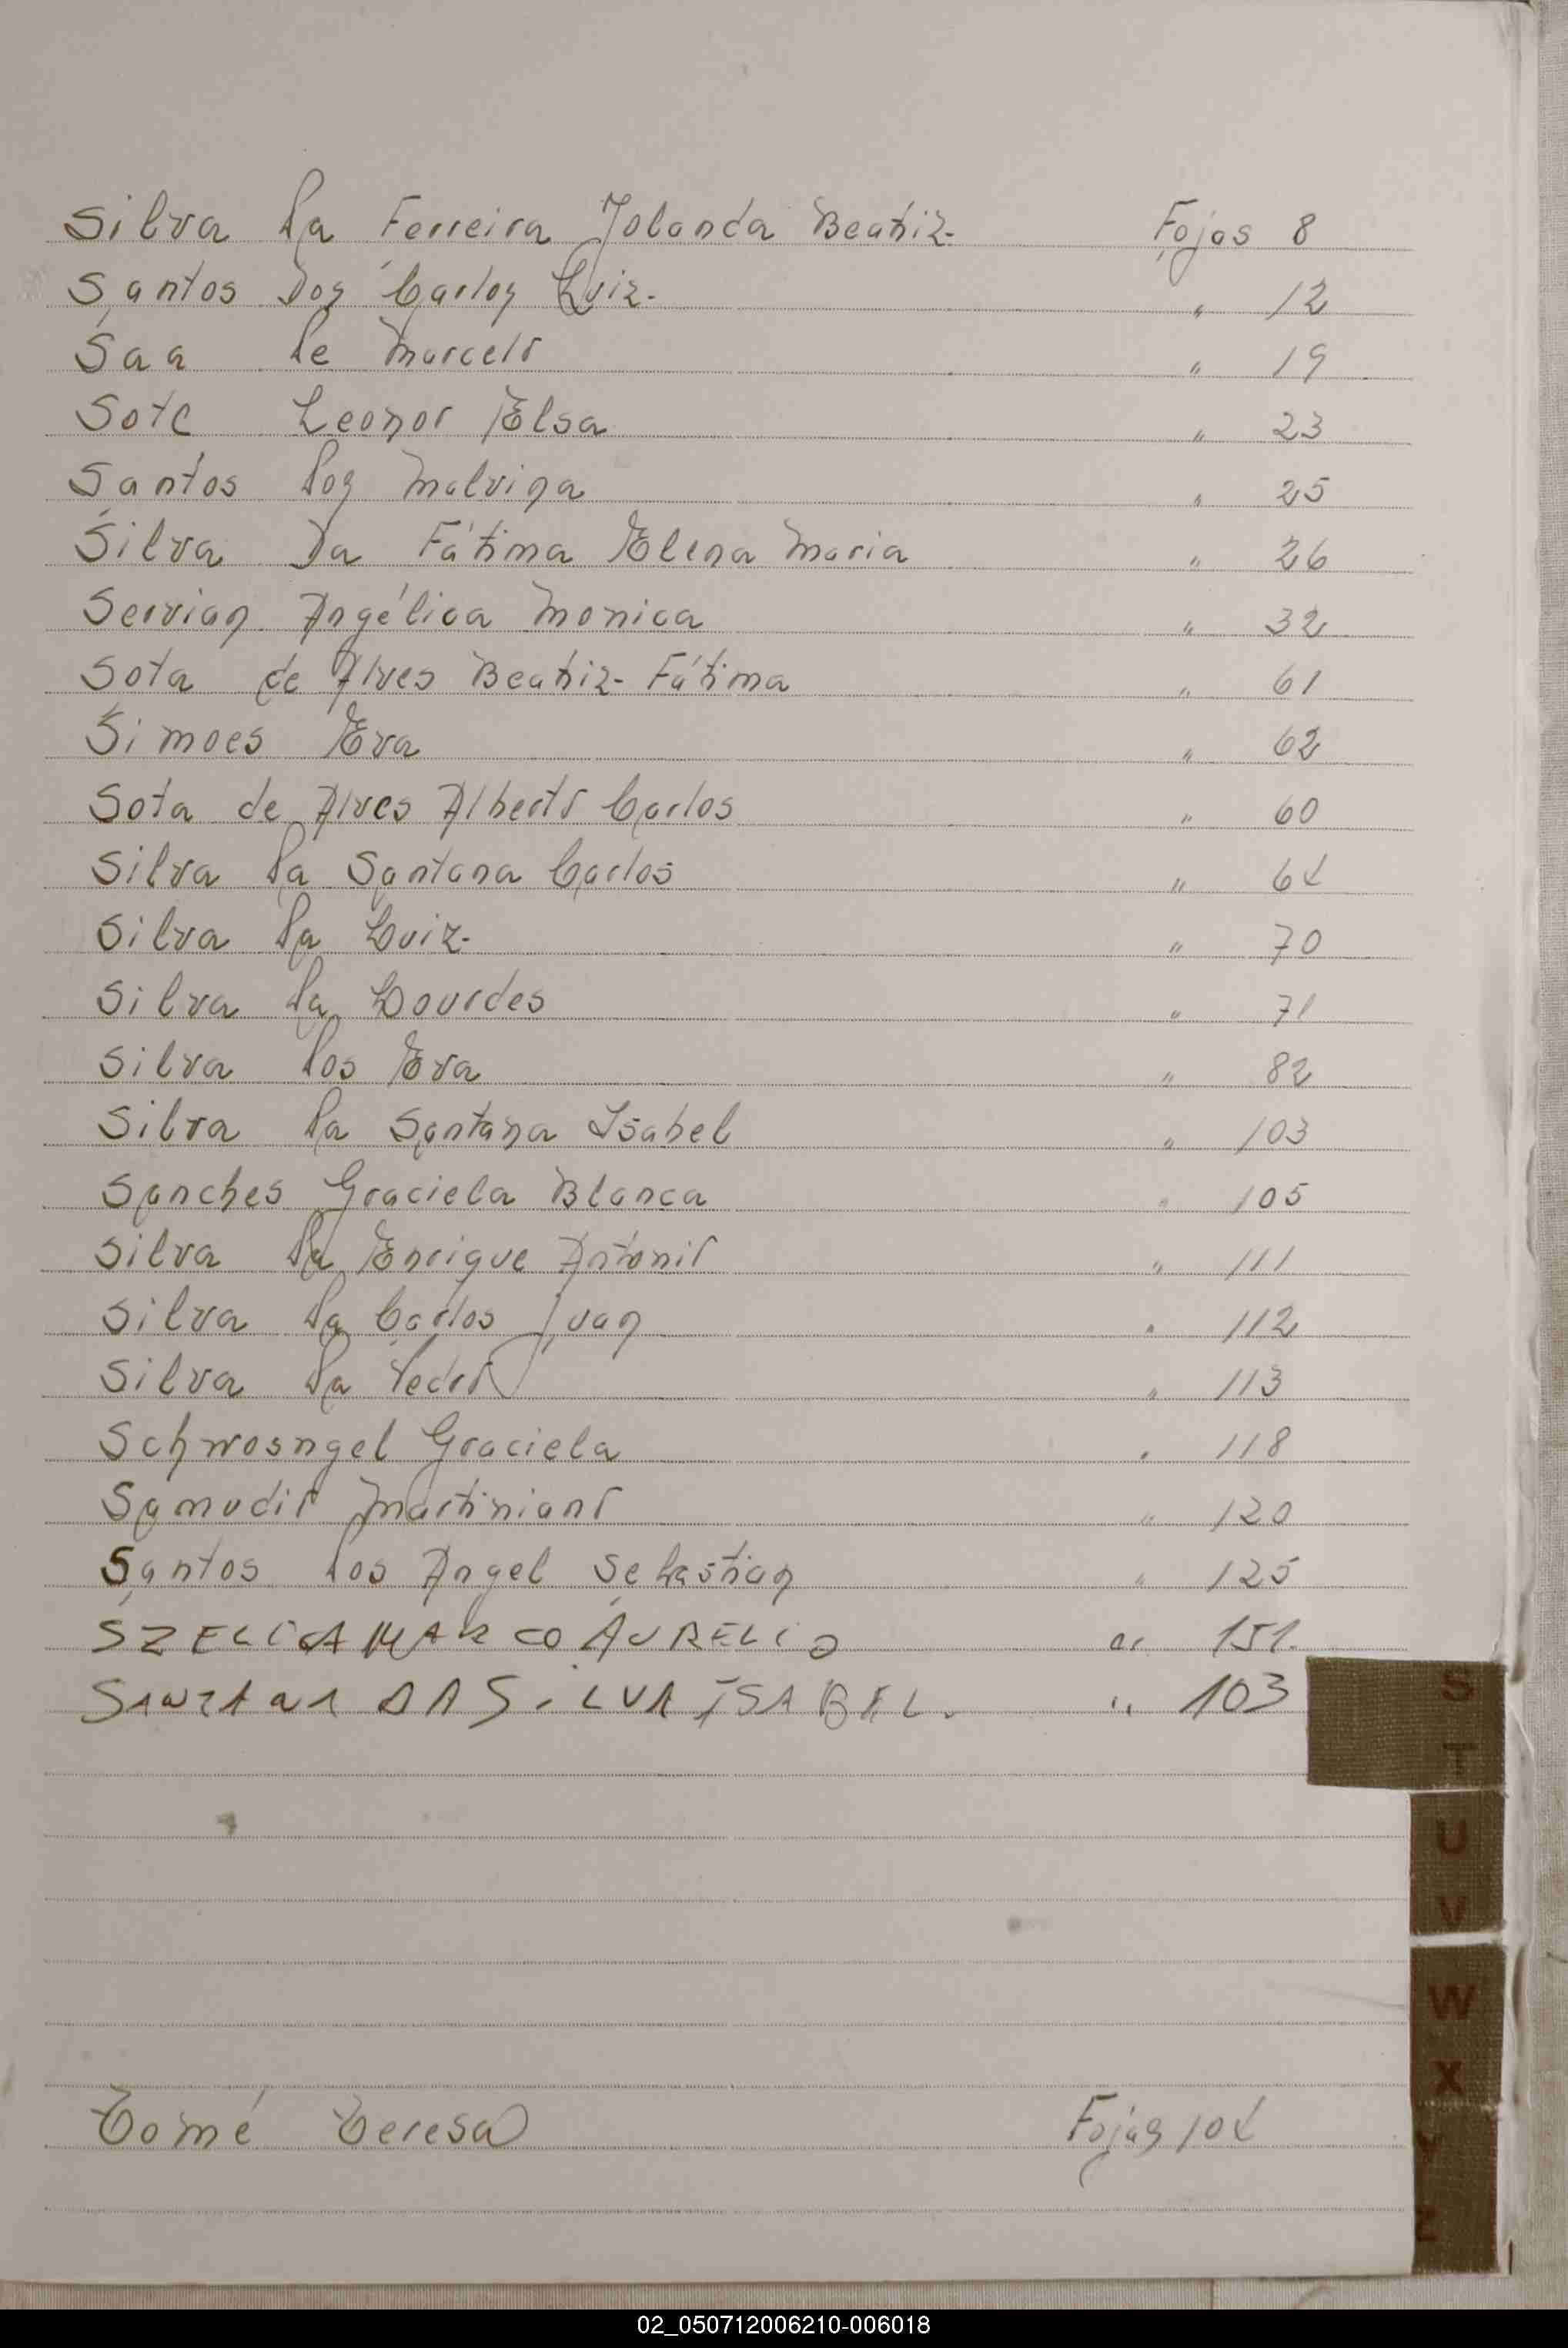 Silva Da Ferreira Yolanda Beatriz Fojas 8
Santos Dos Carlos Luiz " 12
Saa De Marcelo " 19
Sote Leonor Elsa " 23
Santos Dos Malvina " 25
Silva Da Fátima Elena Maria " 26
Servian Angélica Monica " 32
Sota de Alves Beatriz Fátima " 61
Simoes Eva " 62
Sota de Alves Alberto Carlos " 60
Silva Da Santana Carlos " 64
Silva Da Luiz " 70
Silva Da Lourdes " 71
Silva Dos Eva " 82
Silva Da Santana Isabel " 103
Sanches Graciela Blanca " 105
Silva Da Enrique Antonio " 111
Silva Da Carlos Juan " 112
Silva Da Pedro " 113
Schwosngel Graciela " 118
Samudio Martiniano " 120
Santos Dos Angel Sebastian " 125
SZELIGA MARCO AURELIO " 151.
SANTANA DA SILVA ISABEL. " 103
S
T
U
V
W
X
Y
Z
Tomé Teresa Fojas 104
02_050712006210-006018